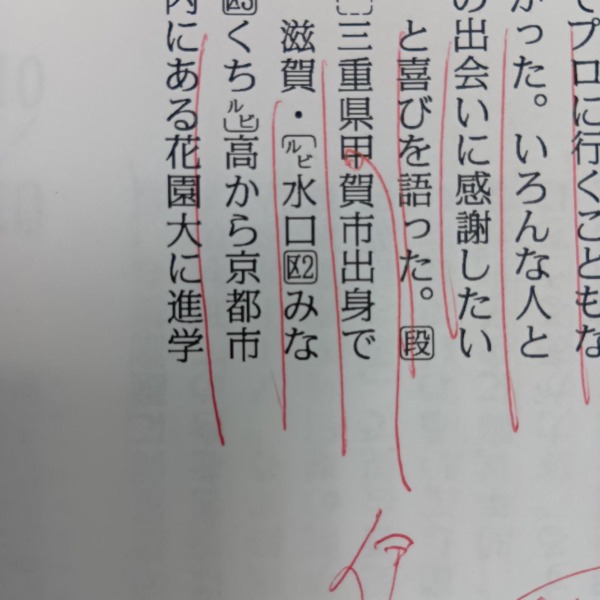 プロに行くこともな
かった。いろんな人と
の出会いに感謝したい
と喜びを語った。段
三重県甲賀市出身で
滋賀・〔ルビ〕水口区2みな
くち〔ルビ〕高から京都市
内にある花園大に進学
伊